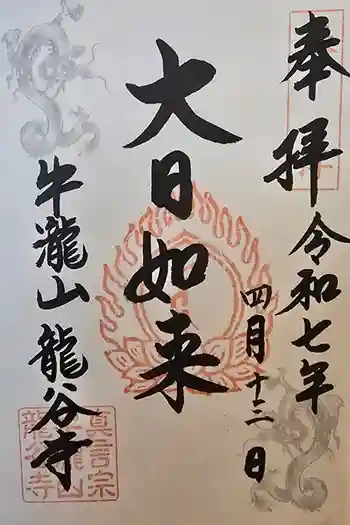 奉拝
令和七年
四月十二日
大日如来
牛瀧山 龍谷寺
真言宗
牛瀧山
龍谷寺